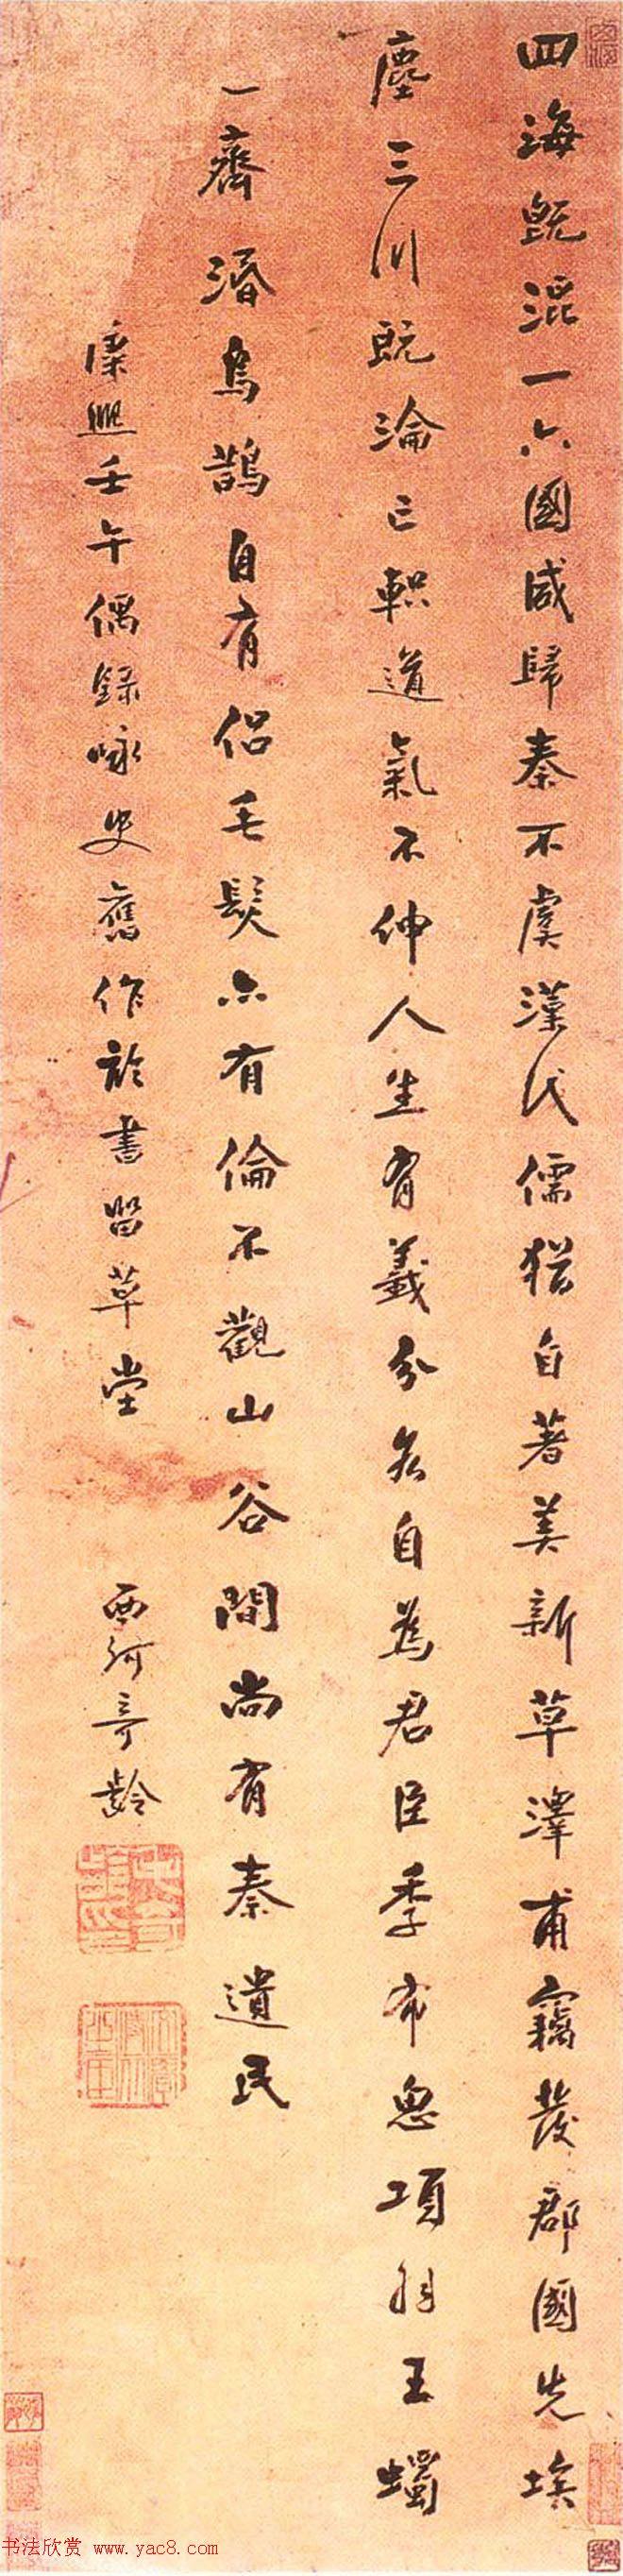 四海既混一六國咸歸秦不虞漢代儒猶自著美新草澤甫竊發郡國先埃
塵三川既淪亡軹道氣不伸人生有義分各自為君臣季布項羽王蠋
一齊湣烏鵲自有侶毛髮亦有倫不觀山谷間尚有秦遺民
康熙壬午偶錄咏史舊作於書留草堂 西河奇齡
书法欣赏 www.yac8.com